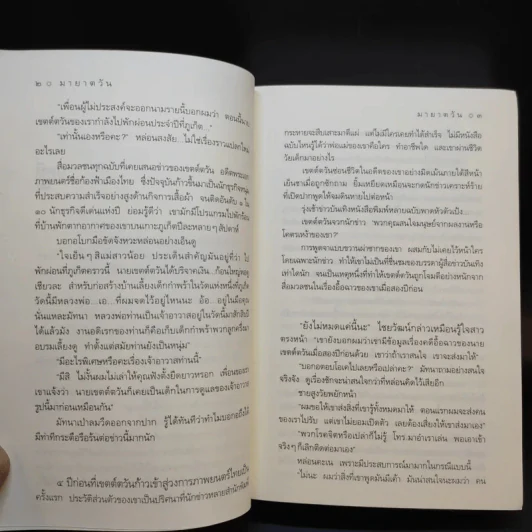 ๒๐ มายาตวัน
"เพื่อนผู้ไม่ประสงค์จะออกนามรายนี้บอกผมว่า ตอนนี้นาย
เขตต์ตวันของเรากำลังไปพักผ่อนประจำปีที่ภูเก็ต..."
"เท่านั้นเองหรือคะ?" หล่อนสงสัย ไม่ใช่เรื่องราวแปลกใหม่
อะไรเลย
สื่อมวลชนทุกฉบับที่เคยเสนอข่าวของเขตต์ตวัน อดีตพระเอก
ภาพยนตร์ชื่อก้องฟ้าเมืองไทย ซึ่งปัจจุบันก้าวขึ้นมาเป็นนักธุรกิจหนุ่ม
ที่ประสบความสำเร็จอย่างสูงด้านกิจการเสื้อผ้า จนติดอันดับ ๑ ใน
๑๐ นักธุรกิจดีเด่นแห่งปี ย่อมรู้ดีว่า เขามักมีโปรแกรมไปพักร้อน
ที่บ้านพักตากอากาศของเขาบนเกาะภูเก็ตปีละหลายๆ สัปดาห์
บอกอโบกมือขัดจังหวะหล่อนอย่างเอ็นดู
"ใจเย็นๆ สิแม่สาวน้อย ประเด็นสำคัญมันอยู่ที่ว่า ไป
พักผ่อนที่ภูเก็ตคราวนี้ นายเขตต์ตวันได้บริจาคเงิน..ก้อนใหญ่ทีเดียว
เชียวละ สำหรับก่อสร้างบ้านเลี้ยงเด็กกำพร้าในวัดแห่งหนึ่งที่ภูเก็ต
วัดนี้มีหลวงพ่อ...เอ...ที่ผมจดไว้อยู่ไหนนะ อ้อ...อยู่ในมือคุณ
นั่นแหละมัทนา หลวงพ่อท่านเป็นเจ้าอาวาสอยู่ในวัดนี้มาสักสิบปี
ได้แล้วมั้ง งานอดิเรกของท่านก็คือเก็บเด็กกำพร้าพวกลูกครึ่งมา
อบรมเลี้ยงดู ทำตั้งแต่สมัยท่านยังเป็นหนุ่ม"
"มีอะไรพิเศษหรือคะเรื่องเจ้าอาวาสท่านนี้"
"มีสิ ไม่งั้นผมไม่เล่าให้คุณฟังตั้งยืดยาวหรอก เพื่อนของผม
เขาแจ้งมาว่า นายเขตต์ตวันก็เคยเป็นเด็กในการดูแลของเจ้าอาวาส
รูปนี้มาก่อนเหมือนกัน"
มัทนาเป่าลมวืดออกจากปาก รู้ได้ทันทีว่าทำไมบอกอถึงได้
มีท่าทีกระดือรือร้นต่อข่าวนี้มากนัก
๕ ปีก่อนที่เขตต์ตวันก้าวเข้าสู่วงการภาพยนตร์ไทยเป็น
ครั้งแรก ประวัติส่วนตัวของเขาเป็นปริศนาที่นักข่าวหลายสำนักพิมพ์
มายาตวัน ๒๑
กระหายจะสืบเสาะมาตีแผ่ แต่ไม่มีใครเคยทำได้สำเร็จ ไม่มีหนังสือ
ฉบับไหนรู้ได้ว่าพ่อแม่ของเขาคือใคร ทำอาชีพใด และเขาผ่านชีวิต
วัยเด็กมาอย่างไร
เขตต์ตวันซ่อนชีวิตในอดีตของเขาอย่างมิดเม้นภายใต้สีหน้า
เย็นชาเมื่อถูกซักถาม ยิ้มเหยียดเหมือนจะกดนักข่าวเคราะห์ร้าย
ที่เปิดปากพูดให้จมดินหายไปต่อหน้า
รุ่งเช้าข่าวบันเทิงหนังสือพิมพ์หลายฉบับพาดหัวตัวเป้ง...
เขตต์ตวันจวกนักข่าว พวกคุณสนใจมนุษย์จากผลงานหรือ
โคตรเหง้าของเขา?
การพูดจาแบบขวานผ่าซากของเขา ผสมกับไม่เคยไว้หน้าใคร
โดยเฉพาะนักข่าว ทำให้เขาไม่เป็นที่ชื่นชมของบรรดาผู้สื่อข่าวบันเทิง
เท่าใดนัก จนเป็นเหตุหนึ่งที่ทำให้เขตต์ตวันถูกโจมตีอย่างหนักจาก
สื่อมวลชนในเรื่องอื้อฉาวของเขาเมื่อสองปีก่อน
"ยังไม่หมดแค่นี้นะ" ไชยวัฒน์กล่าวเหมือนรู้ใจสาว
ตรงหน้า "เขายังบอกผมว่าเขามีข้อมูลเรื่องคดีอื้อฉาวของนาย
เขตต์ตวันเมื่อสองปีก่อนด้วย เขาว่าถ้าเราสนใจ เขาจะส่งมาให้"
"บอกอตอบโอเคไปเลยหรือเปล่าคะ?" มัทนาถามอย่างสนใจ
จริงจัง ดูเรื่องชักจะน่าสนใจกว่าที่หล่อนคิดไว้เสียอีก
ชายสูงวัยพยักหน้า
"ผมขอให้เขาส่งสิ่งที่เขารู้ทั้งหมดมาให้ ตอนแรกผมจะส่งคน
ของเราไปรับ แต่เขาไม่ยอมเปิดตัว เลยต้องเสี่ยงให้เขาส่งมาเอง"
"พวกโรคจิตหรือเปล่าก็ไม่รู้ โทร.มาอำเราเล่น พอเอาเข้า
จริงๆ ก็เลิกติดต่อมาเอง"
หล่อนคะเน เพราะมีประสบการณ์มามากในกรณีแบบนี้
"ไม่นะ ผมว่าสิ่งที่เขาพูดมันมีเค้า มันน่าสนใจนะผมว่า คน